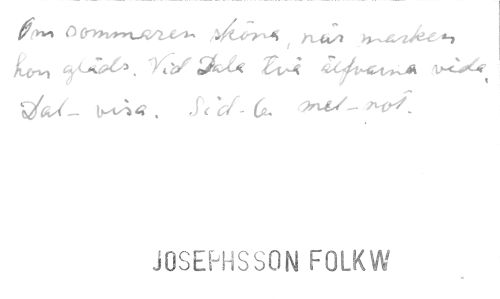 Om sommaren sköna, när marken
hon gläds. Vid Dala två älfvarna vida.
Dal-visa. Sid-6. mel-not.
JOSEPHSSON FOLKW